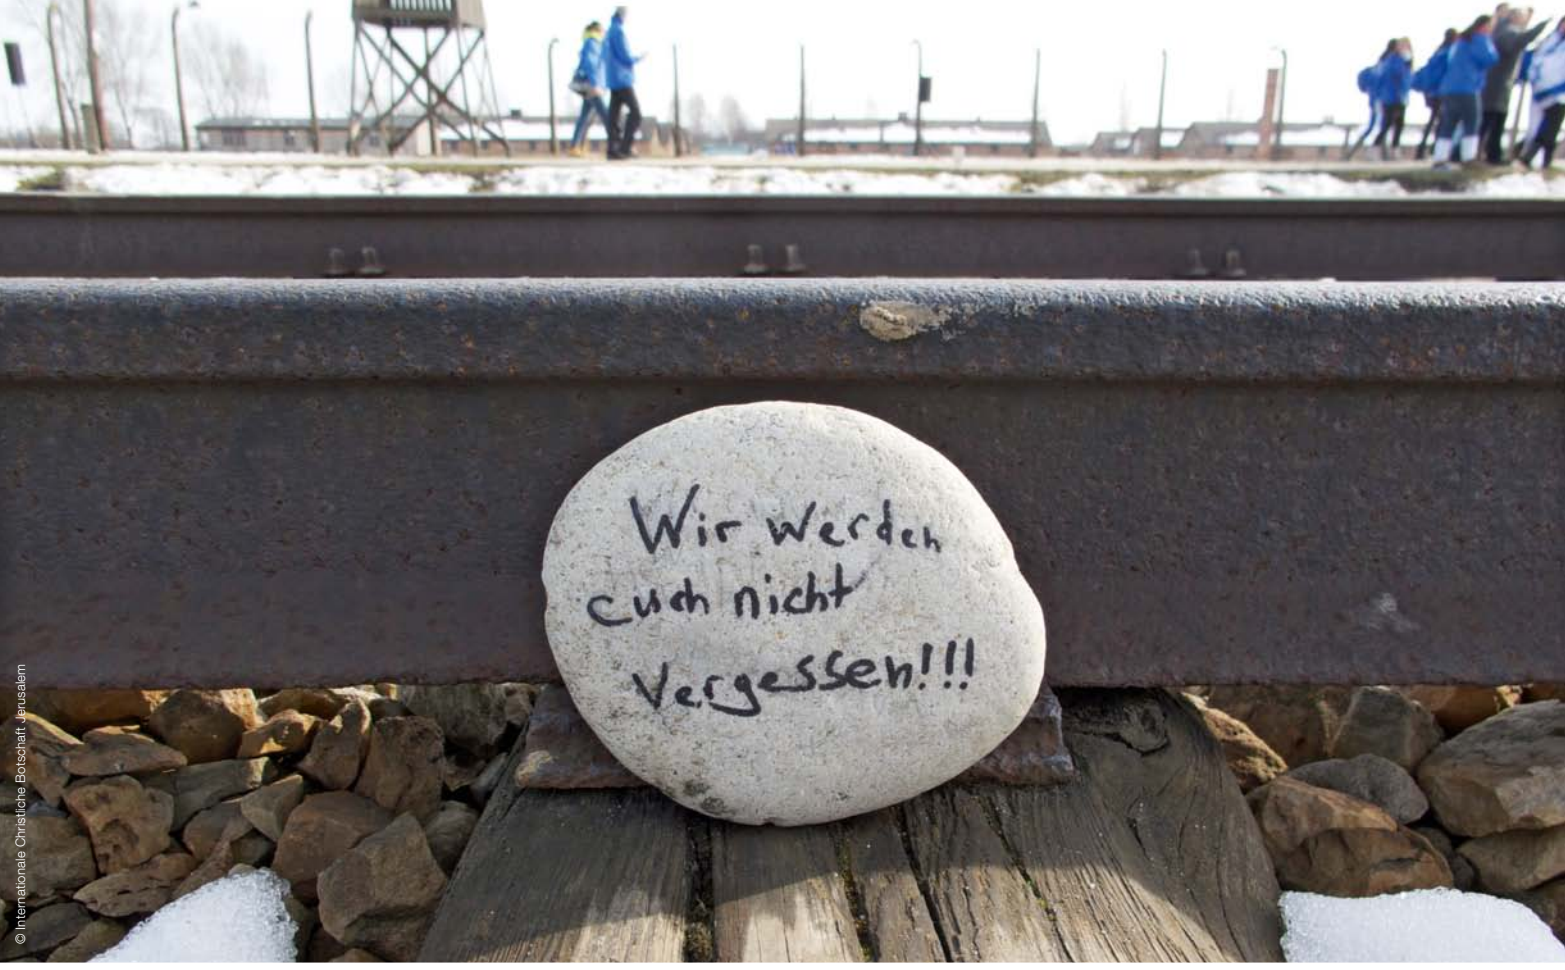 Wir werden
euch nicht
vergessen!!!
© Internationale Christliche Botschaft Jerusalem